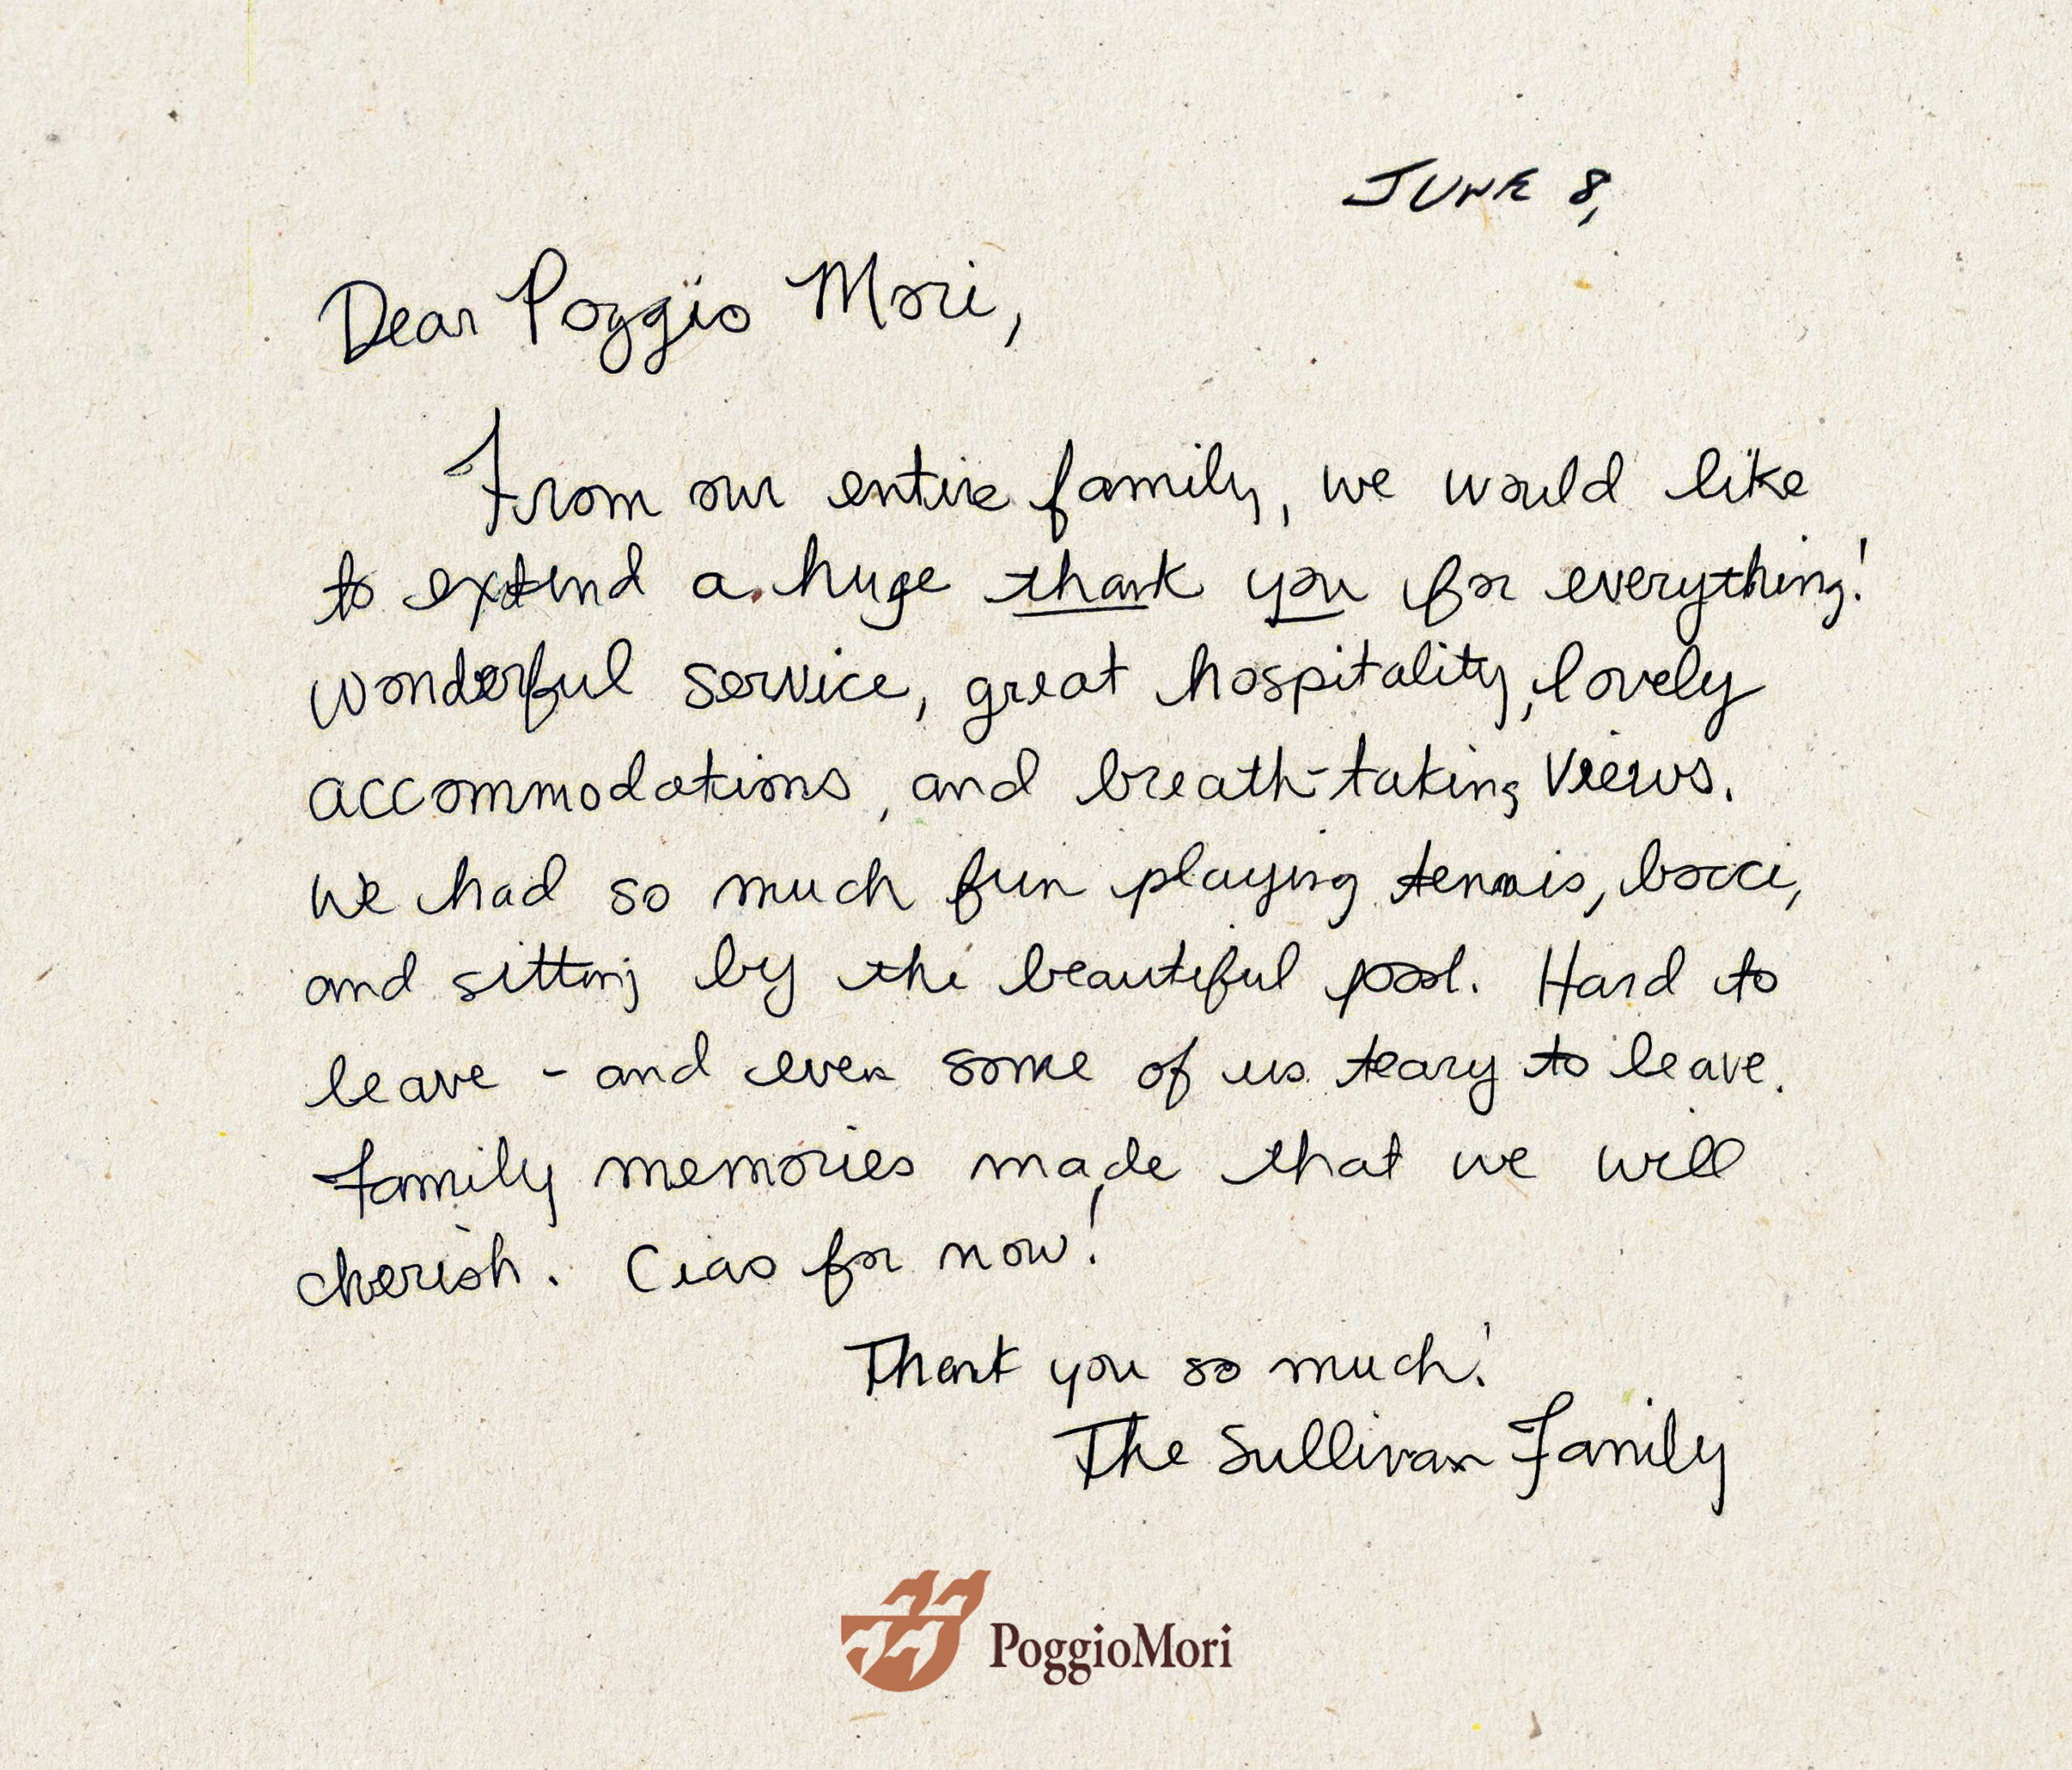 JUNE 8,
Dear Poggio Mori,
From our entire family, we would like
to extend a huge thank you for everything!
Wonderful service, great hospitality, lovely
accommodations, and breath-taking views.
We had so much fun playing tennis, bocci,
and sitting by the beautiful pool. Hard to
leave - and even some of us teary to leave.
Family memories made that we will
cherish. Ciao for now!
Thank you so much!
The Sullivan Family
PoggioMori